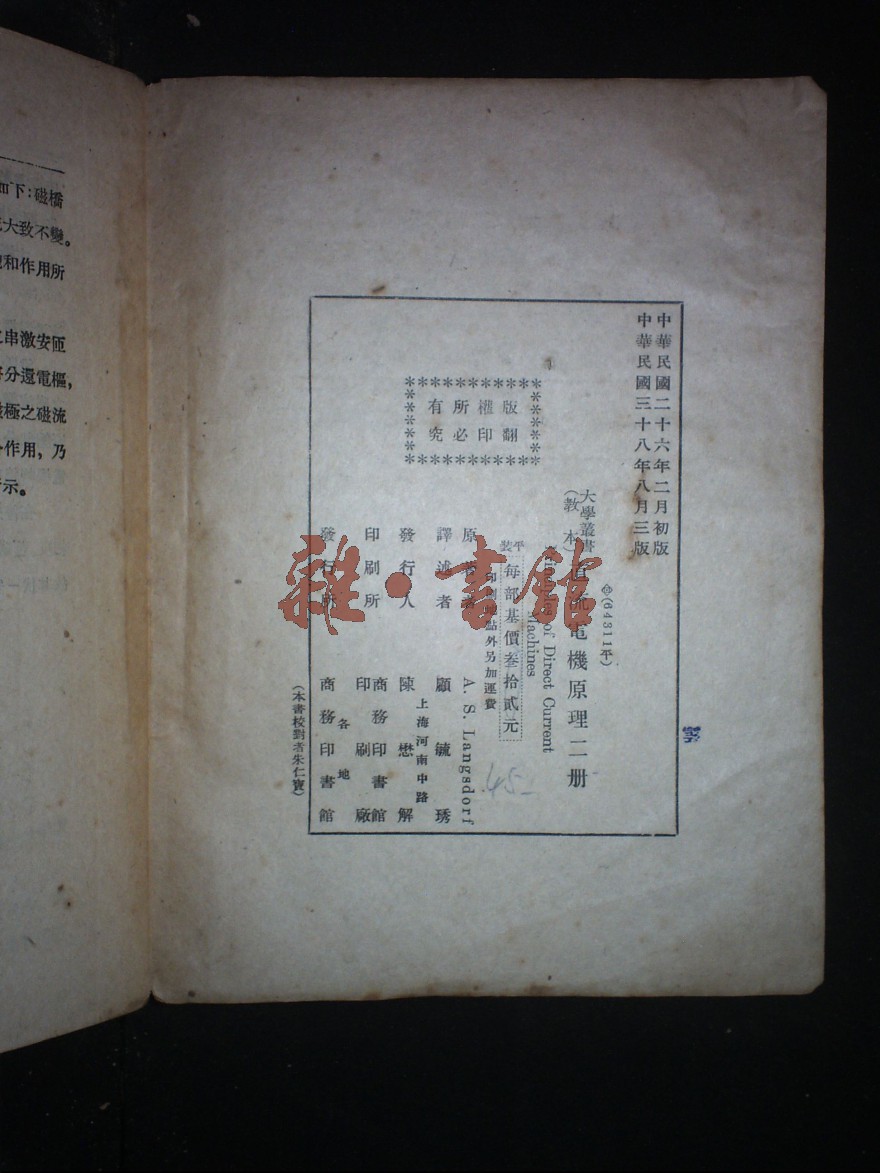 中華民國二十六年二月初版
中華民國三十八年八月三版
(64311平)
大學叢書
(教本)
直流電機原理二册
Principles of Direct Current
Machines
平裝
每部基價叁拾貳元
印刷地點外另加運費
版權所有
翻印必究
原著者 A. S. Langsdorf
譯述者 顧毓琇
上海河南中路
發行人 陳懋解
印刷所 商務印書館
印刷廠
發行所 各地
商務印書館
(本書校對者朱仁寶)
45
雜·書館
如下:磁橋
大致不變。
和作用所
串激安匝
分還電樞,
極之磁流
作用,乃
示。